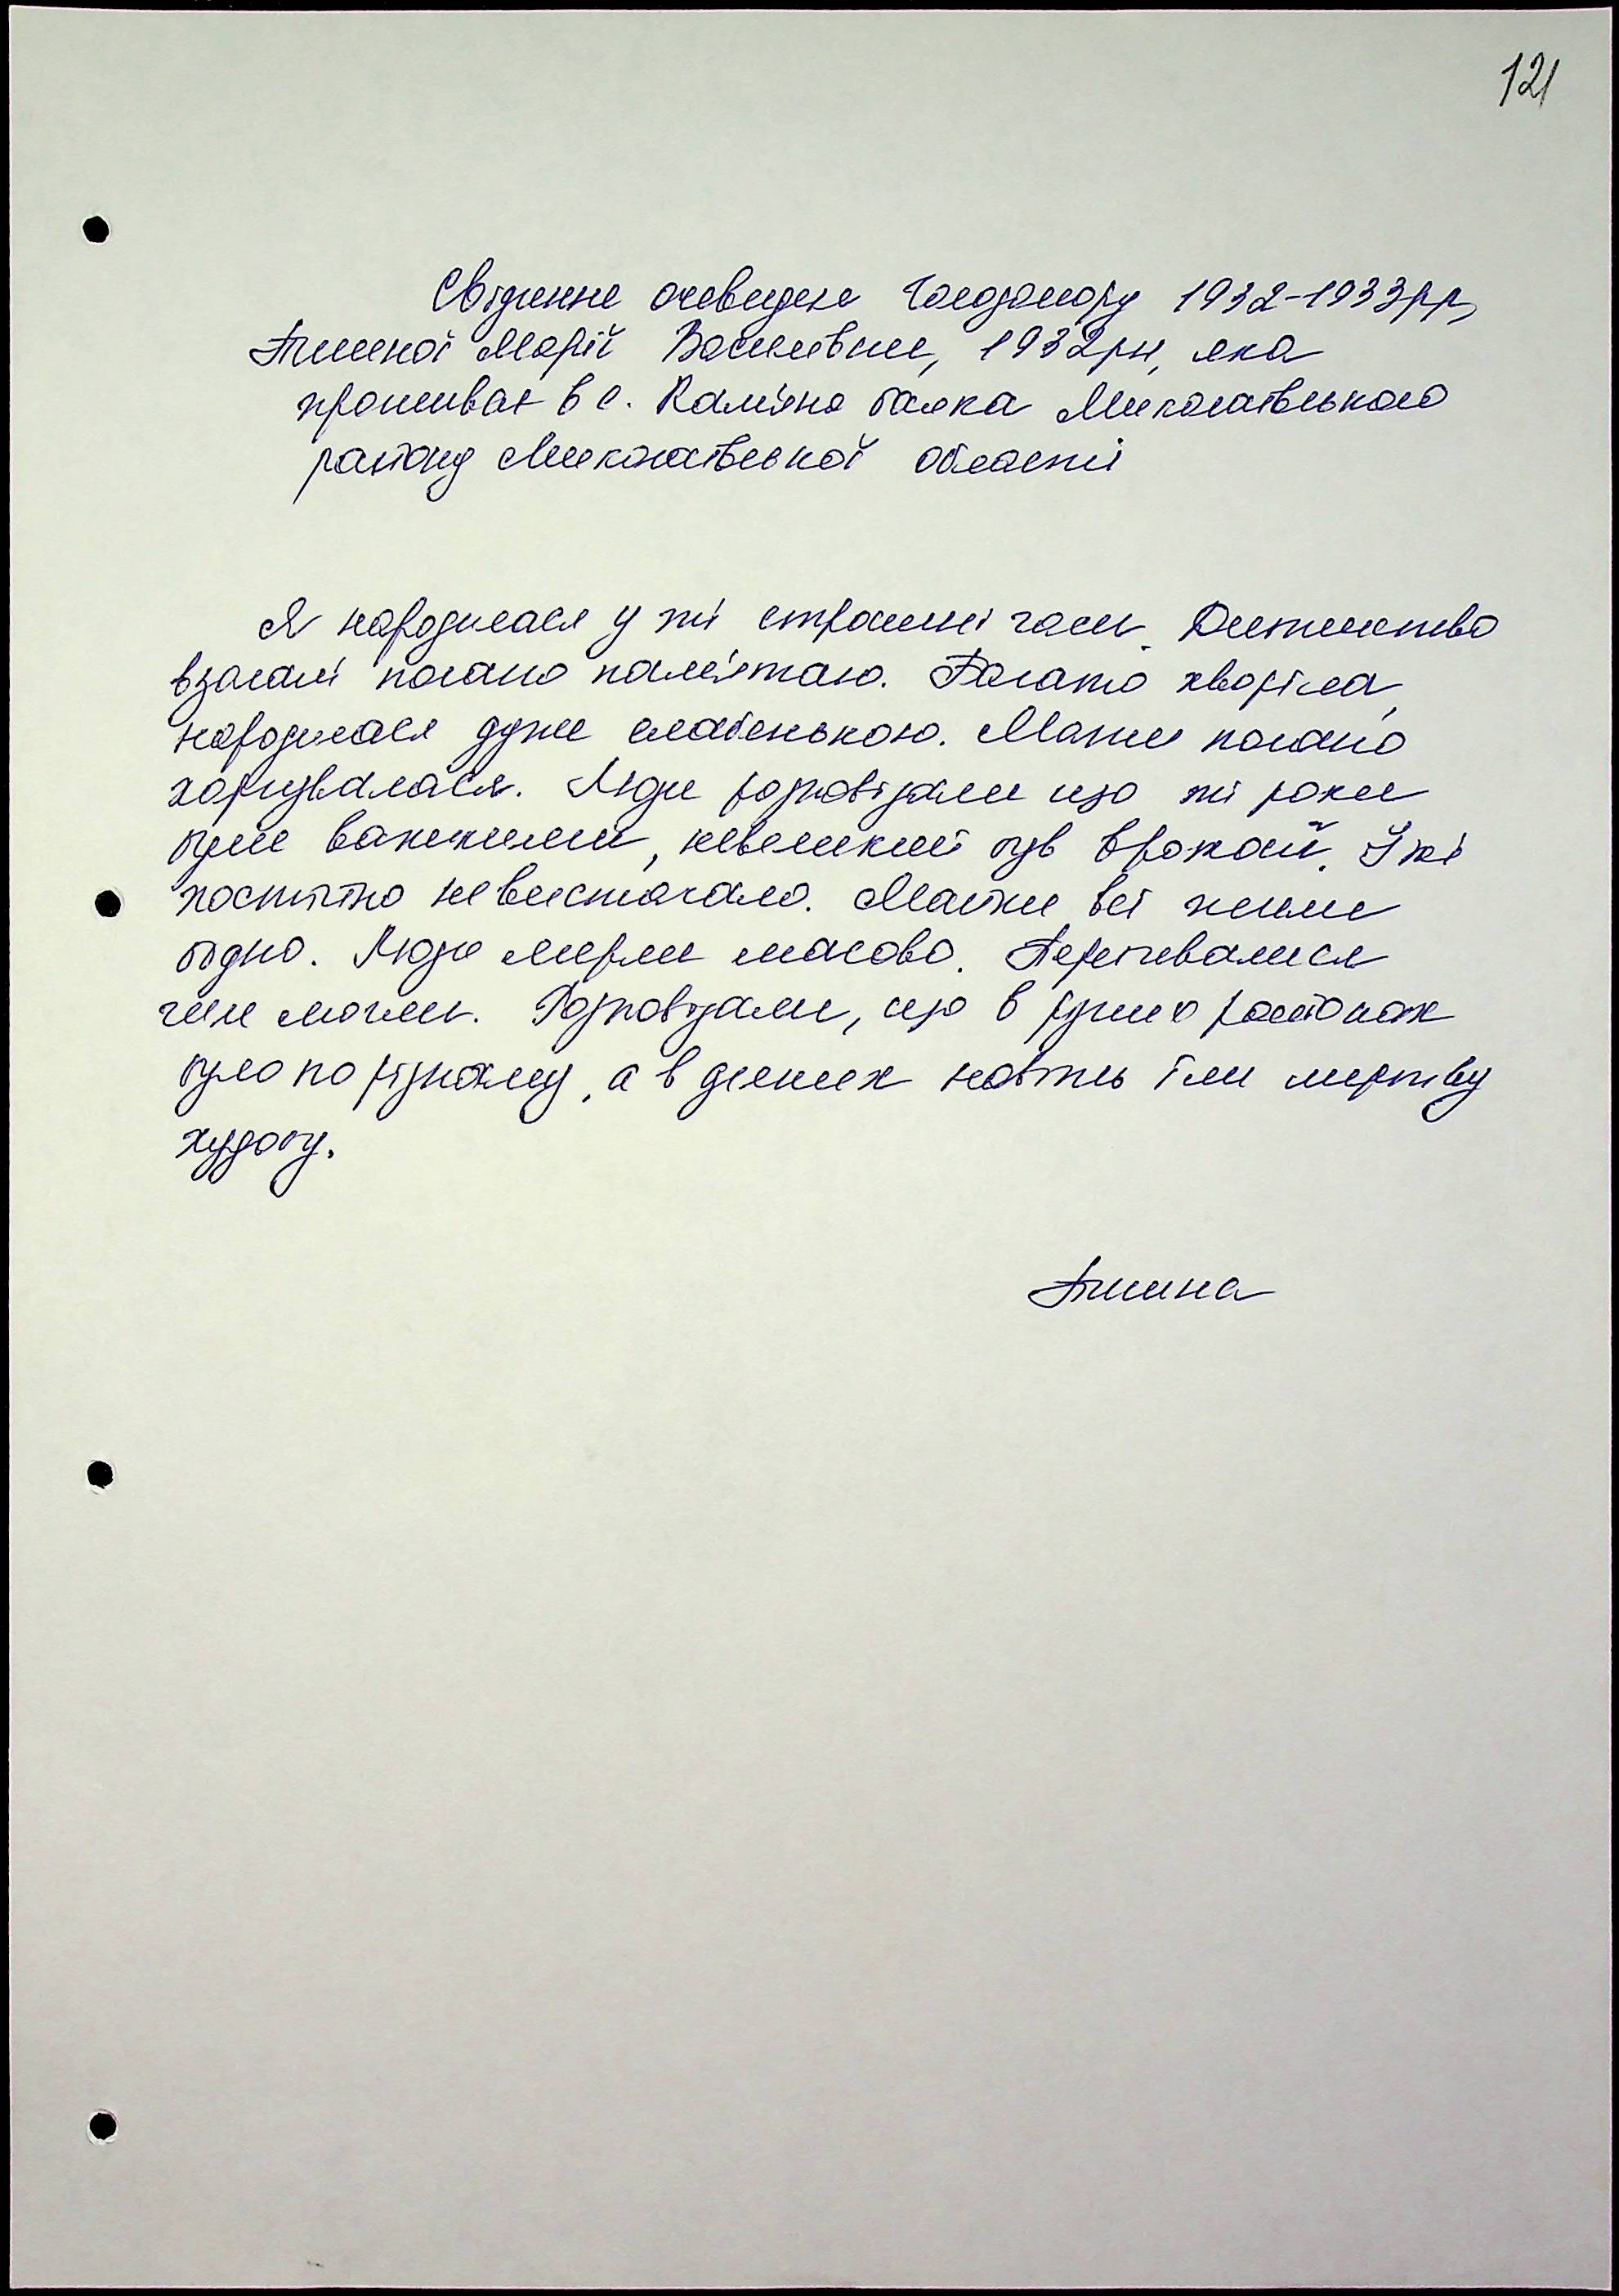 121
Свідчення очевидця Голодомору 1932-1933рр,
Марії Василівни, 1932рн, яка
проживає в с. Кам'яна балка Миколаївського
району Миколаївської області
Я народилася у ті страшні часи. Дитинство
взагалі погано пам'ятаю. Багато хворіла,
народилася дуже слабенькою. Мати погано
харчувалася. Люди розповідали що ті роки
були важкими, невеликий був врожай. Їжі
постійно не вистачало. Майже всі жили
бідно. Люди мерли масово. Перебивалися
чим могли. Розповідали, що в різних районах
було по різному, а в деяких навіть їли мертву
худобу.